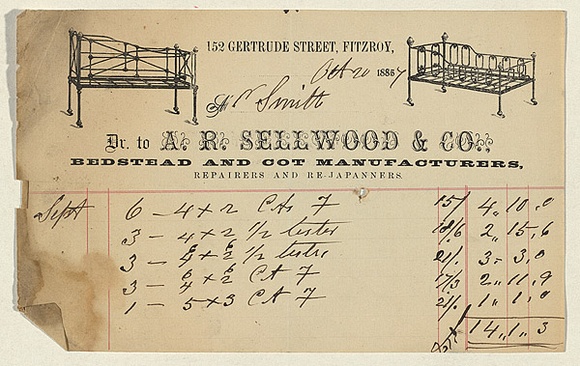 152 GERTRUDE STREET, FITZROY,
Oct 20 1887
Mr Smith
Dr. to A. R. SELLWOOD & CO.,
BEDSTEAD AND COT MANUFACTURERS,
REPAIRERS AND RE-JAPANNERS.
Sept 6 - 4 x 2 7 15/ 4 " 10 " 0
3 - 4 x 2 1/2 tester 18/6 2 " 15 " 6
3 - 4 6 x 2 6 1/2 21/. 3 - 3 " 0
3 - 4 6 x 2 6 7 17/3 2 " 11 " 9
1 - 5 x 3 7 21/. 1 " 1 " 0
14 " 1 " 3